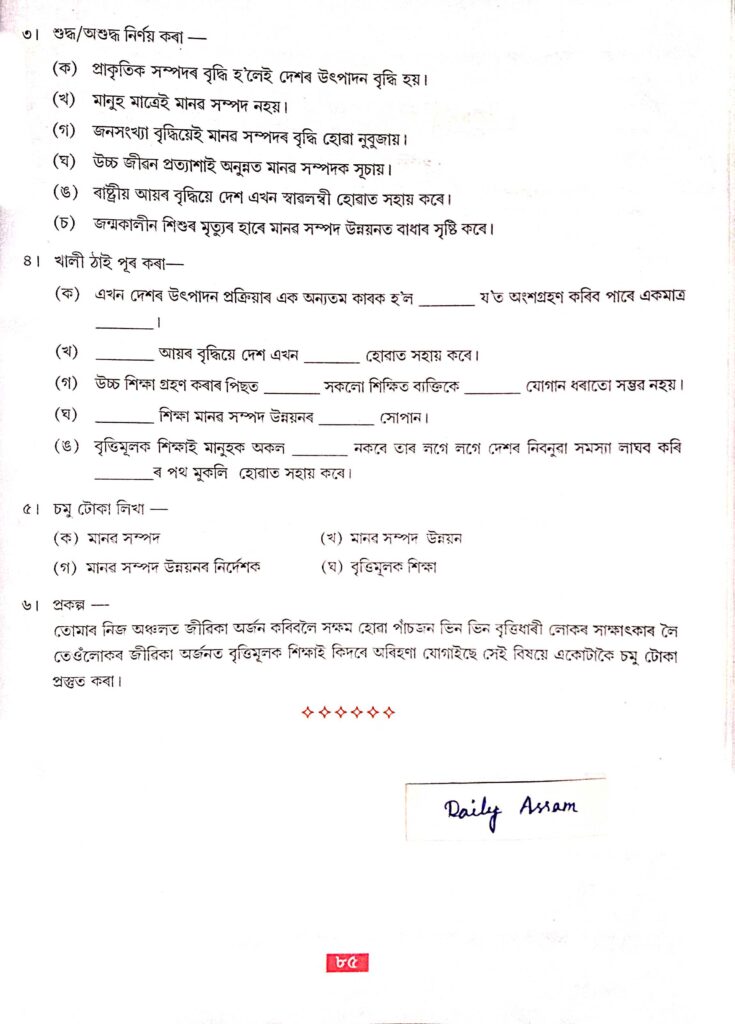 ৩। শুদ্ধ/অশুদ্ধ নিৰ্ণয় কৰা —
(ক) প্ৰাকৃতিক সম্পদৰ বৃদ্ধি হ'লেই দেশৰ উৎপাদন বৃদ্ধি হয়।
(খ) মানুহ মাত্ৰেই মানৱ সম্পদ নহয়।
(গ) জনসংখ্যা বৃদ্ধিয়েই মানৱ সম্পদৰ বৃদ্ধি হোৱা নুবুজায়।
(ঘ) উচ্চ জীৱন প্ৰত্যাশাই অনুন্নত মানৱ সম্পদক সূচায়।
(ঙ) ৰাষ্ট্ৰীয় আয়ৰ বৃদ্ধিয়ে দেশ এখন স্বাৱলম্বী হোৱাত সহায় কৰে।
(চ) জন্মকালীন শিশুৰ মৃত্যুৰ হাৰে মানৱ সম্পদ উন্নয়নত বাধাৰ সৃষ্টি কৰে।
৪। খালী ঠাই পূৰ কৰা—
(ক) এখন দেশৰ উৎপাদন প্ৰক্ৰিয়াৰ এক অন্যতম কাৰক হ'ল _______ য'ত অংশগ্ৰহণ কৰিব পাৰে একমাত্ৰ
_______।
(খ) _______ আয়ৰ বৃদ্ধিয়ে দেশ এখন _______ হোৱাত সহায় কৰে।
(গ) উচ্চ শিক্ষা গ্ৰহণ কৰাৰ পিছত _______ সকলো শিক্ষিত ব্যক্তিকে _______ যোগান ধৰাতো সম্ভৱ নহয়।
(ঘ) _______ শিক্ষা মানৱ সম্পদ উন্নয়নৰ _______ সোপান।
(ঙ) বৃত্তিমূলক শিক্ষাই মানুহক অকল _______ নকৰে তাৰ লগে লগে দেশৰ নিবনুৱা সমস্যা লাঘব কৰি
_______ৰ পথ মুকলি হোৱাত সহায় কৰে।
৫। চমু টোকা লিখা —
(ক) মানৱ সম্পদ (খ) মানৱ সম্পদ উন্নয়ন
(গ) মানৱ সম্পদ উন্নয়নৰ নিৰ্দেশক (ঘ) বৃত্তিমূলক শিক্ষা
৬। প্ৰকল্প —
তোমাৰ নিজ অঞ্চলত জীৱিকা অৰ্জন কৰিবলৈ সক্ষম হোৱা পাঁচজন ভিন ভিন বৃত্তিধাৰী লোকৰ সাক্ষাৎকাৰ লৈ
তেওঁলোকৰ জীৱিকা অৰ্জনত বৃত্তিমূলক শিক্ষাই কিদৰে অৰিহণা যোগাইছে সেই বিষয়ে একোটাকৈ চমু টোকা
প্ৰস্তুত কৰা।
Daily Assam
৮৫